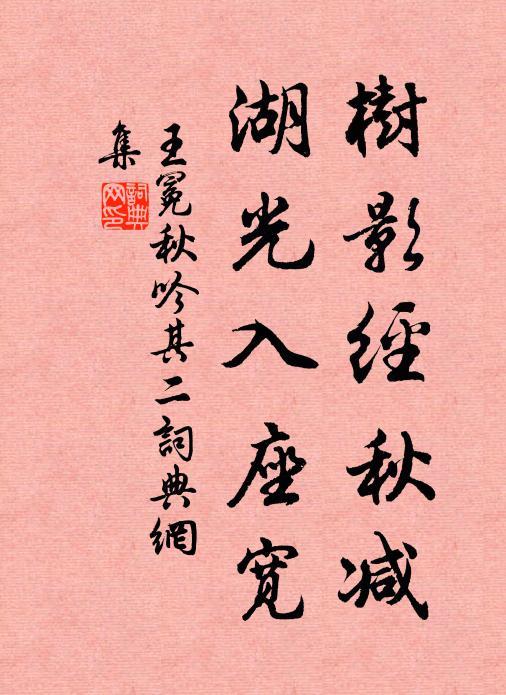 樹影經秋减
湖光入座寬
王冕秋吟其二詞典網
集
詞典
网印